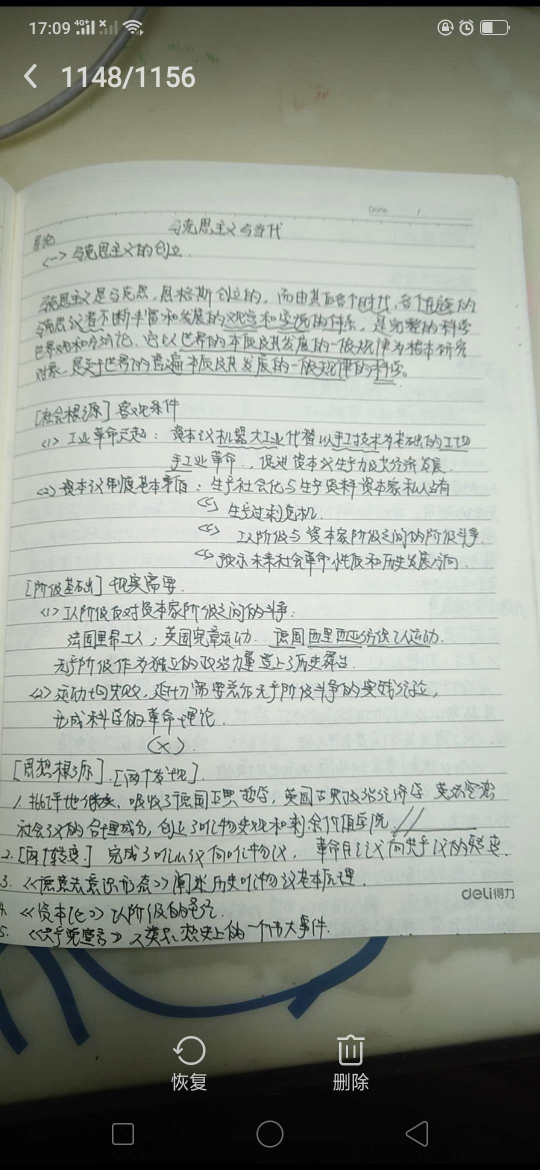 17:09
1148/1156
Date. /
马克思主义与当代
导论
<一> 马克思主义的创立.
马克思主义是马克思,恩格斯创立的,而由其后各个时代,各个民族的
马克思议者不断丰富和发展的观点和学说的体系,是完整的科学
世界观和方法论,它以世界的本质及其发展的一般规律为根本研究
对象,是关于世界的普遍本质及其发展的一般规律的科学。
[社会根源] 客观条件
<1> 工业革命兴起: 资本议机器大工业代替以手工技术为基础的工场
手工业革命.,促进资本议生产力及其经济发展.
<2> 资本议制度基本矛盾: 生产社会化与生产资料资本家私人占有
生产过剩危机.
工人阶级与资本家阶级之间的阶级斗争.
预示未来社会革命性质和历史发展方向.
[阶级基础] 现实需要.
<1> 工人阶级反对资本家阶级之间的斗争.
法国里昂工人,英国宪章运动. 德国西里西亚纺织工人运动.
无产阶级作为独立的政治力量登上了历史舞台.
<2> 运动均失败,迫切需要总结无产阶级斗争的实践经验,
形成科学的革命理论.
(X).
[思想根源].[两个发现].
1. 批评地继承,吸收了德国古典哲学,英国古典政治经济学 英法空想
社会议的合理成分,创立了唯物史观和剩余价值学说.
2.[两个转变] 完成了唯心议向唯物议,革命民主议向共产议的转变.
3. 《德意志意识形态》阐述历史唯物议基本原理.
4. 《资本论》工人阶级的圣经.
5. 《共产党宣言》人类思想史上的一个伟大事件.
deli得力
恢复
删除